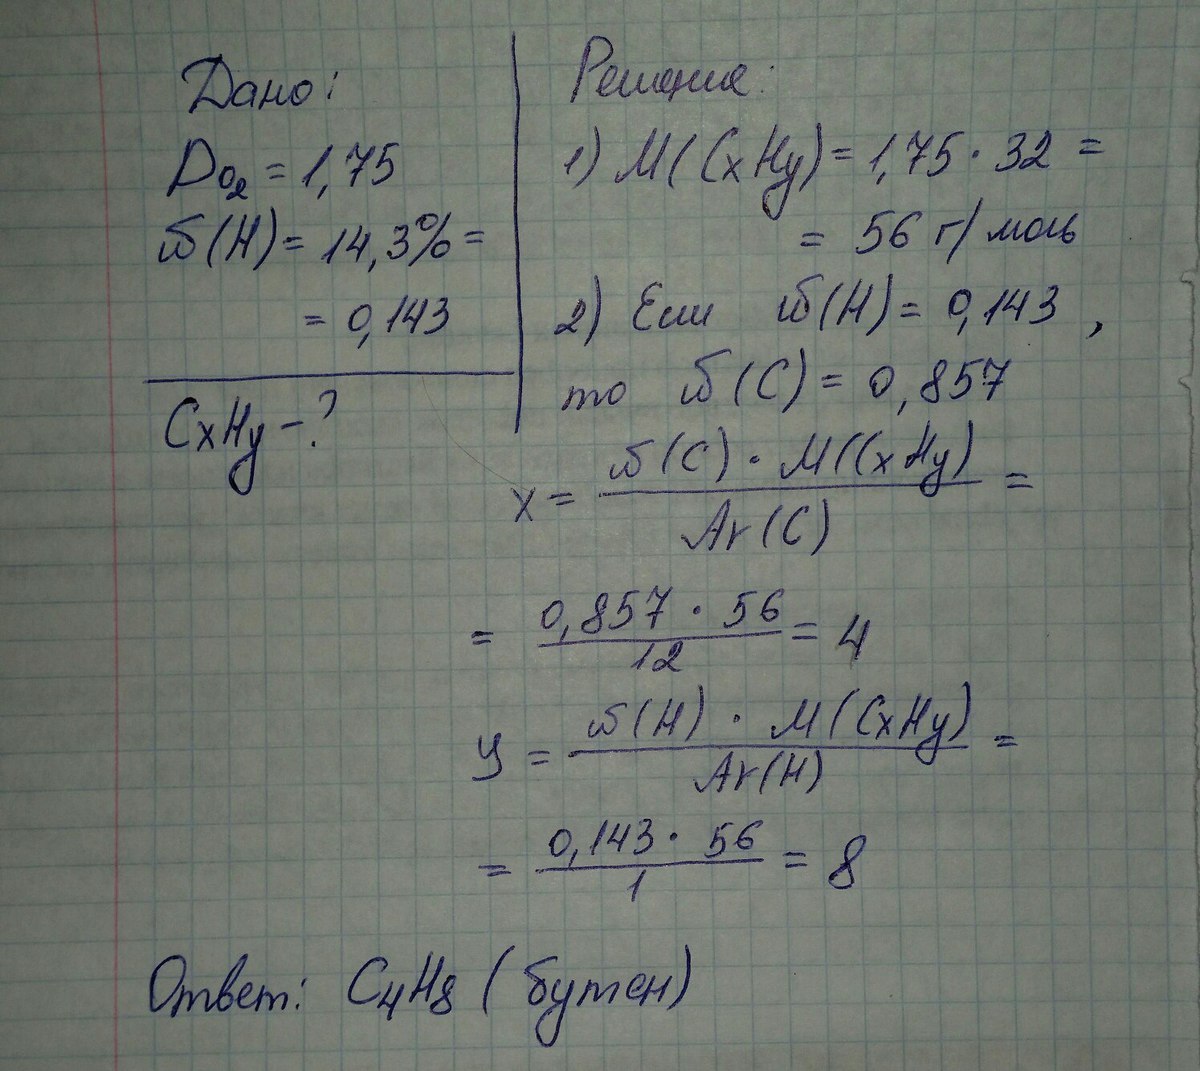 Дано:
D₀₂ = 1,75
ω(H) = 14,3% =
= 0,143
CxHy - ?
Решение:
1) M(CxHy) = 1,75 · 32 =
= 56 г/моль
2) Если ω(H) = 0,143 ,
то ω(C) = 0,857
x = ω(C) · M(CxHy) / Ar(C) =
= 0,857 · 56 / 12 = 4
y = ω(H) · M(CxHy) / Ar(H) =
= 0,143 · 56 / 1 = 8
Ответ: C₄H₈ (бутен)